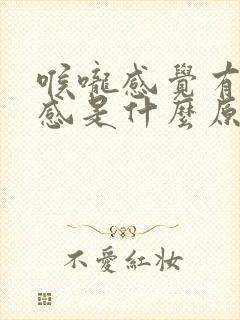 喉嚨感覺有
感是什麼原
不愛紅妝